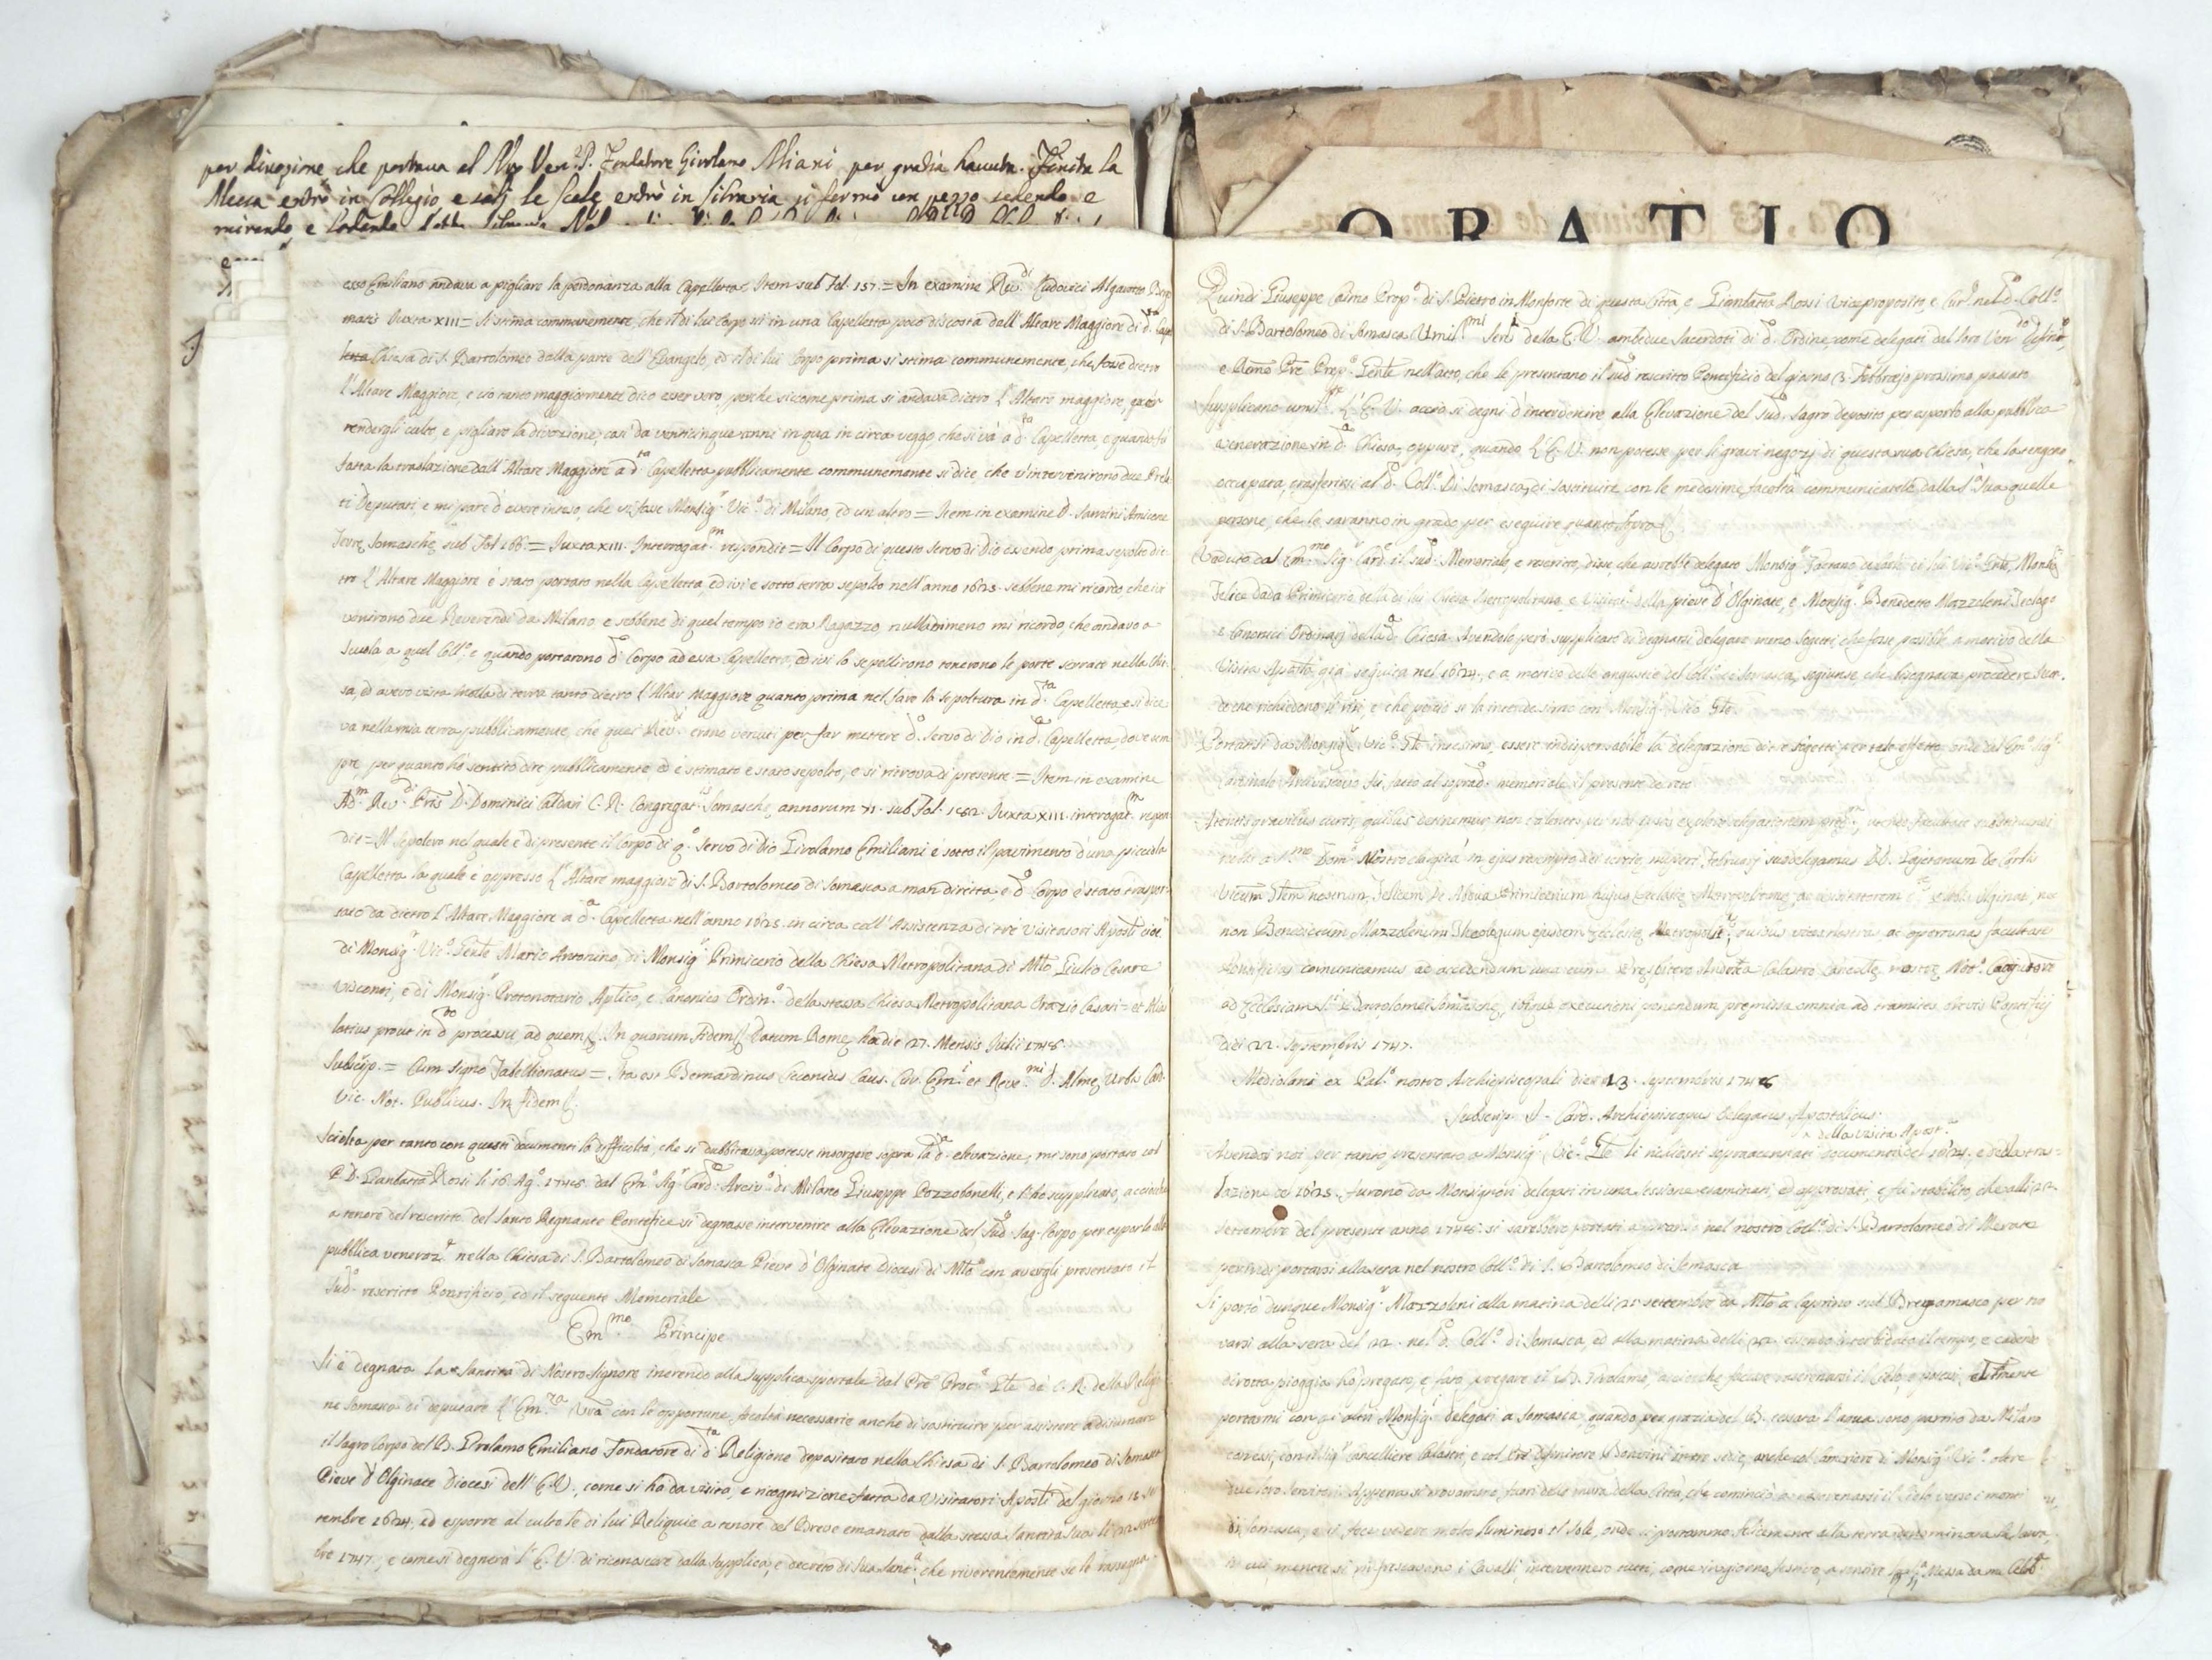 per divozione che portava al Nro Ven. P. Fondatore Girolamo Miani per gratia havuta. Finita la
Messa entrò in Collegio, e salj le scale entrò in libraria si fermò un pezzo sedendo e
mirando, e lodando
esso Emiliano andava a pigliare la perdonanza alla Capelletta. Item sub fol. 157. = In examine Rev.di Ludovici Algarotto
juxta XIII = Si stima communemente, che il di lui Corpo sii in una Capelletta poco discosta dall'Altare Maggiore di d.ta
Chiesa di S. Bartolomeo dalla parte dell'Evangelo, ed il di lui Corpo prima si stima communemente, che fosse dietro
l'Altare Maggiore, e ciò tanto maggiormente dico esser vero, perche siccome prima si andava dietro l'Altare maggiore, per
rendergli culto, e pigliare la divozione, così da venticinque anni in qua in circa veggo che si và a d.ta Capelletta, e quando fù
fatta la traslazione dall'Altare Maggiore a d.ta Capelletta pubblicamente communemente si dice, che v'intervenirono due Prela
ti Deputati, e mi pare d'avere inteso, che vi fosse Monsig.r Vic.o di Milano, ed un altro = Item in examine D.
Somaschę sub fol 166. = Juxta XIII. Interrogat.m respondit = Il Corpo di questo Servo di Dio essendo prima sepolto die
tro l'Altare Maggiore è stato portato nella Capelletta, ed ivi è sotto terra sepolto nell'anno 1625. sebbene mi ricordo che ivi
venirono due Reverendi da Milano, e sebbene di quel tempo io era Ragazzo, nulladimeno mi ricordo, che andavo a
scuola a quel Coll.o e quando portarono d.o Corpo ad essa Capelletta, ed ivi lo sepellirono tenerono le porte serrate nella Chi-
sa, ed avevo vista molta di terra tanto dietro l'Altar Maggiore quanto prima nel fare la sepoltura in d.ta Capelletta, e si dice
va nella mia terra pubblicamente, che quei Rev.i erano venuti per far mettere d.o Servo di Dio in d.a Capelletta, dove sem
pre, per quanto hò sentito dire pubblicamente, ed è stimato è stato sepolto, e si ritrova di presente = Item in examine
Ad.m Rev.di Pris D. Dominici Caldari C. R. Congregat.is Somaschę, annorum 71. sub fol. 182. Juxta XIII. interrogat.m respon
dit = Il sepolcro nel quale è di presente il Corpo di q.o Servo di Dio Girolamo Emiliani è sotto il pavimento d'una piccola
Capelletta la quale è appresso l'Altare maggiore di S. Bartolomeo di Somasca a man diritta, e d.o Corpo è stato traspor-
tato da dietro l'Altare Maggiore a d.a Capelletta nell'anno 1625. in circa coll'Assistenza di trè Visitatori Apost.i cioè
di Monsig.r Vic.o Gente Mario Antonino, di Monsig.r Primicerio della Chiesa Metropolitana di Mlo Giulio Cesare
Visconti, e di Monsig.r Protonotario Aplico, e Canonico Ordin.o della stessa Chiesa Metropolitana Orazio Casati = et alias
latius prout in d.to processu ad quem. In quorum fidem Datum Romę hac die 27. Mensis Julii 1748.
Subscrip. = Cum signo Tabellionatus = Ita est Bernardinus Ciconius Caus. Cur. Em.i et Reve.mi D. Almę Urbis Card.
Vic. Not. Publicus. In fidem.
Sciolta per tanto con questi documenti la difficoltà, che si dubbitava potesse insorgere sopra la d.a elevazione, mi sono portato col
P. D. Giambatta Rossi li 16 Ag.o 1748 dal Em.o Sig.r Card.e Arciv.o di Milano Giuseppe Pozzobonelli, e l'ho supplicato, acciocche
a tenore del rescritto del Santo Regnante Pontefice si degnasse intervenire alla Elevazione del Sud.o Sag. Corpo per esporlo alla
pubblica veneraz.e nella Chiesa di S. Bartolomeo di Somasca Pieve d'Olginate Diocesi di Mlo con avergli presentato il
Sud.o rescritto Pontificio, ed il seguente Memoriale
Em.mo Principe
Si è degnata la Santità di Nostro Signore inerendo alla supplica portale dal Pre Proc.e Gle de' C. R. della Religio
ne Somasca di deputare l'Em.za Vra con le opportune facoltà necessarie anche di sostituire per assistere a disumare
il Sagro Corpo del B. Girolamo Emiliano Fondatore di d.ta Religione depositato nella Chiesa di S. Bartolomeo di Somasca
Pieve d'Olginate Diocesi dell'E. V., come si ha da visita, e ricognizione fatta da Visitatori Aposti del giorno 18 Set
tembre 1624, ed esporre al culto le di lui Reliquie a tenore del Breve emanato dalla stessa Santità Sua li 22 Settem
bre 1747, e come si degnerà l'E. V. di riconoscere dalla supplica, e decreto di Sua Sant.à, che riverentemente se le rassegna.
ORATIO
Quindi Giuseppe Caimo Prop.o di S. Pietro in Monforte di questa Città, e Giambatta Rossi Viceproposito, e Cur.o nel d.o Coll.o
di S. Bartolomeo di Somasca Umil.mi Ser.i della E. V. ambidue Sacerdoti di d.o Ordine come delegati dal loro Ven.do Definit.o,
e Rmo Pre Prep.o Gente nell'atto, che le presentano il sud.o rescritto Pontificio del giorno 3. Febbrajo prossimo passato
supplicano umil.te l'E. V. acciò si degni d'intervenire alla Elevazione del Sud.o Sagro deposito per esporlo alla pubblica
venerazione in d.a Chiesa, oppure, quando l'E. V. non potesse per li gravi negozj di questa sua Chiesa, che la tengono
occupata, trasferirsi al d.o Coll.o di Somasca, di sostituire con le medesime facoltà communicatele dalla S.tà Sua quelle
persone, che le saranno in grado per eseguire quanto sovra
Veduto dal Em.mo Sig.r Card.e il Sud.o Memoriale, e rescritto, disse che avrebbe delegato Monsig.r Gaetano de Carli di lui Vic.o Gnte, Monsig.r
Felice Dada Primicerio della di lui Chiesa Metropolitana, e Visitat.e della pieve d'Olginate, e Monsig.r Benedetto Mazzoleni Teologo
e Canonici Ordinarj della d.a Chiesa. Avendolo però supplicato di degnarsi delegare meno Sogetti, che fosse possibile, a motivo della
Visita Aposta già seguita nel 1624, e a motivo delle angustie del Coll.o di Somasca, soggiunse, che bisognava procedere secon-
do che richiedono li riti, e che perciò se la intendessimo con Monsig.r Vic.o Gle.
Portatisi da Monsig.r Vic.o Gle intesimo, essere indispensabile la delegazione di tre sogetti per tale effetto, onde dal Em.o Sig.r
Cardinale Arcivescovo fù fatto al sovrad.o memoriale il presente decreto
Attentis gravibus curis, quibus detinemur non valentes per nos ipsos explere delegationem
nobis a S.mo Dom.o Nostro elargita in ejus rescripto diei tertię nuperi Februarj subdelegamus DD. Cajetanum De Carlis
Vicum Glem nostrum, Felicem De Abdua Primicerium hujus Ecclesię Metropolitanę, ac visitatorem Plebis Olginati, nec
non Benedictum Mazzolenum Theologum ejusdem Ecclesię Metropolit.ę, quibus vices nostras, ac oportunas facultates
Pontificias comunicamus ad accedendum una cum Presbitero Andrea Calastro Cancellę nostrę Not.o Coadjutore
ad Ecclesiam S.ti Bartolomei Somaschę, itque executioni ponendum premissa omnia ad tramites Brevis Pontificij
diei 22. Septembris 1747.
Mediolani ex Pal.o nostro Archiepiscopali die 13. Septembris 1748
Subscrip. J. Card. Archiepiscopus Delegatus Apostolicus.
della visita Apost.a
Avendo noi per tanto presentato a Monsig.r Vic.o Gle li richiesti sopraaccennati documenti del 1624, e della tras-
lazione del 1625, furono da Monsignori delegati in una sessione esaminati, ed approvati, e fù stabilito, che alli 22
Settembre del presente anno 1748. si sarebbero portati a pranso nel nostro Coll.o di S. Bartolomeo di Merate
per indi portarsi alla sera nel nostro Coll.o di S. Bartolomeo di Somasca
Si portò dunque Monsig.r Mazzoleni alla matina delli 21 settembre da Mlo a Caprino sul Bregamasco per tro
varsi alla sera del 22. nel d.o Coll.o di Somasca, ed alla matina delli 22. essendo intorbidato il tempo, e cadendo
dirotta pioggia hò pregato, e fatto pregare il B. Girolamo, acciocche facesse rasserenarsi il Cielo, e potessi
portarmi con gi altri Monsig.i delegati a Somasca, quando per grazia del B. cessata l'aqua sono partito da Milano
con essi, con il Sig.r Cancelliere Calastri, e col Pre Difinitore Bonvini in tre sedie, anche col Cameriere di Monsig.r Vic.o oltre
due loro Servitori. Appena si trovammo fuori delle mura della Città, che cominciò a rasserenarsi il Cielo verso i monti
di Somasca, e si fece vedere molto luminoso il Sole, onde si portammo felicemente alla terra denominata
in cui mentre si rinfrescavano i Cavalli, intervennero tutti, come in giorno festivo, a sentire la S. Messa da me Celeb.